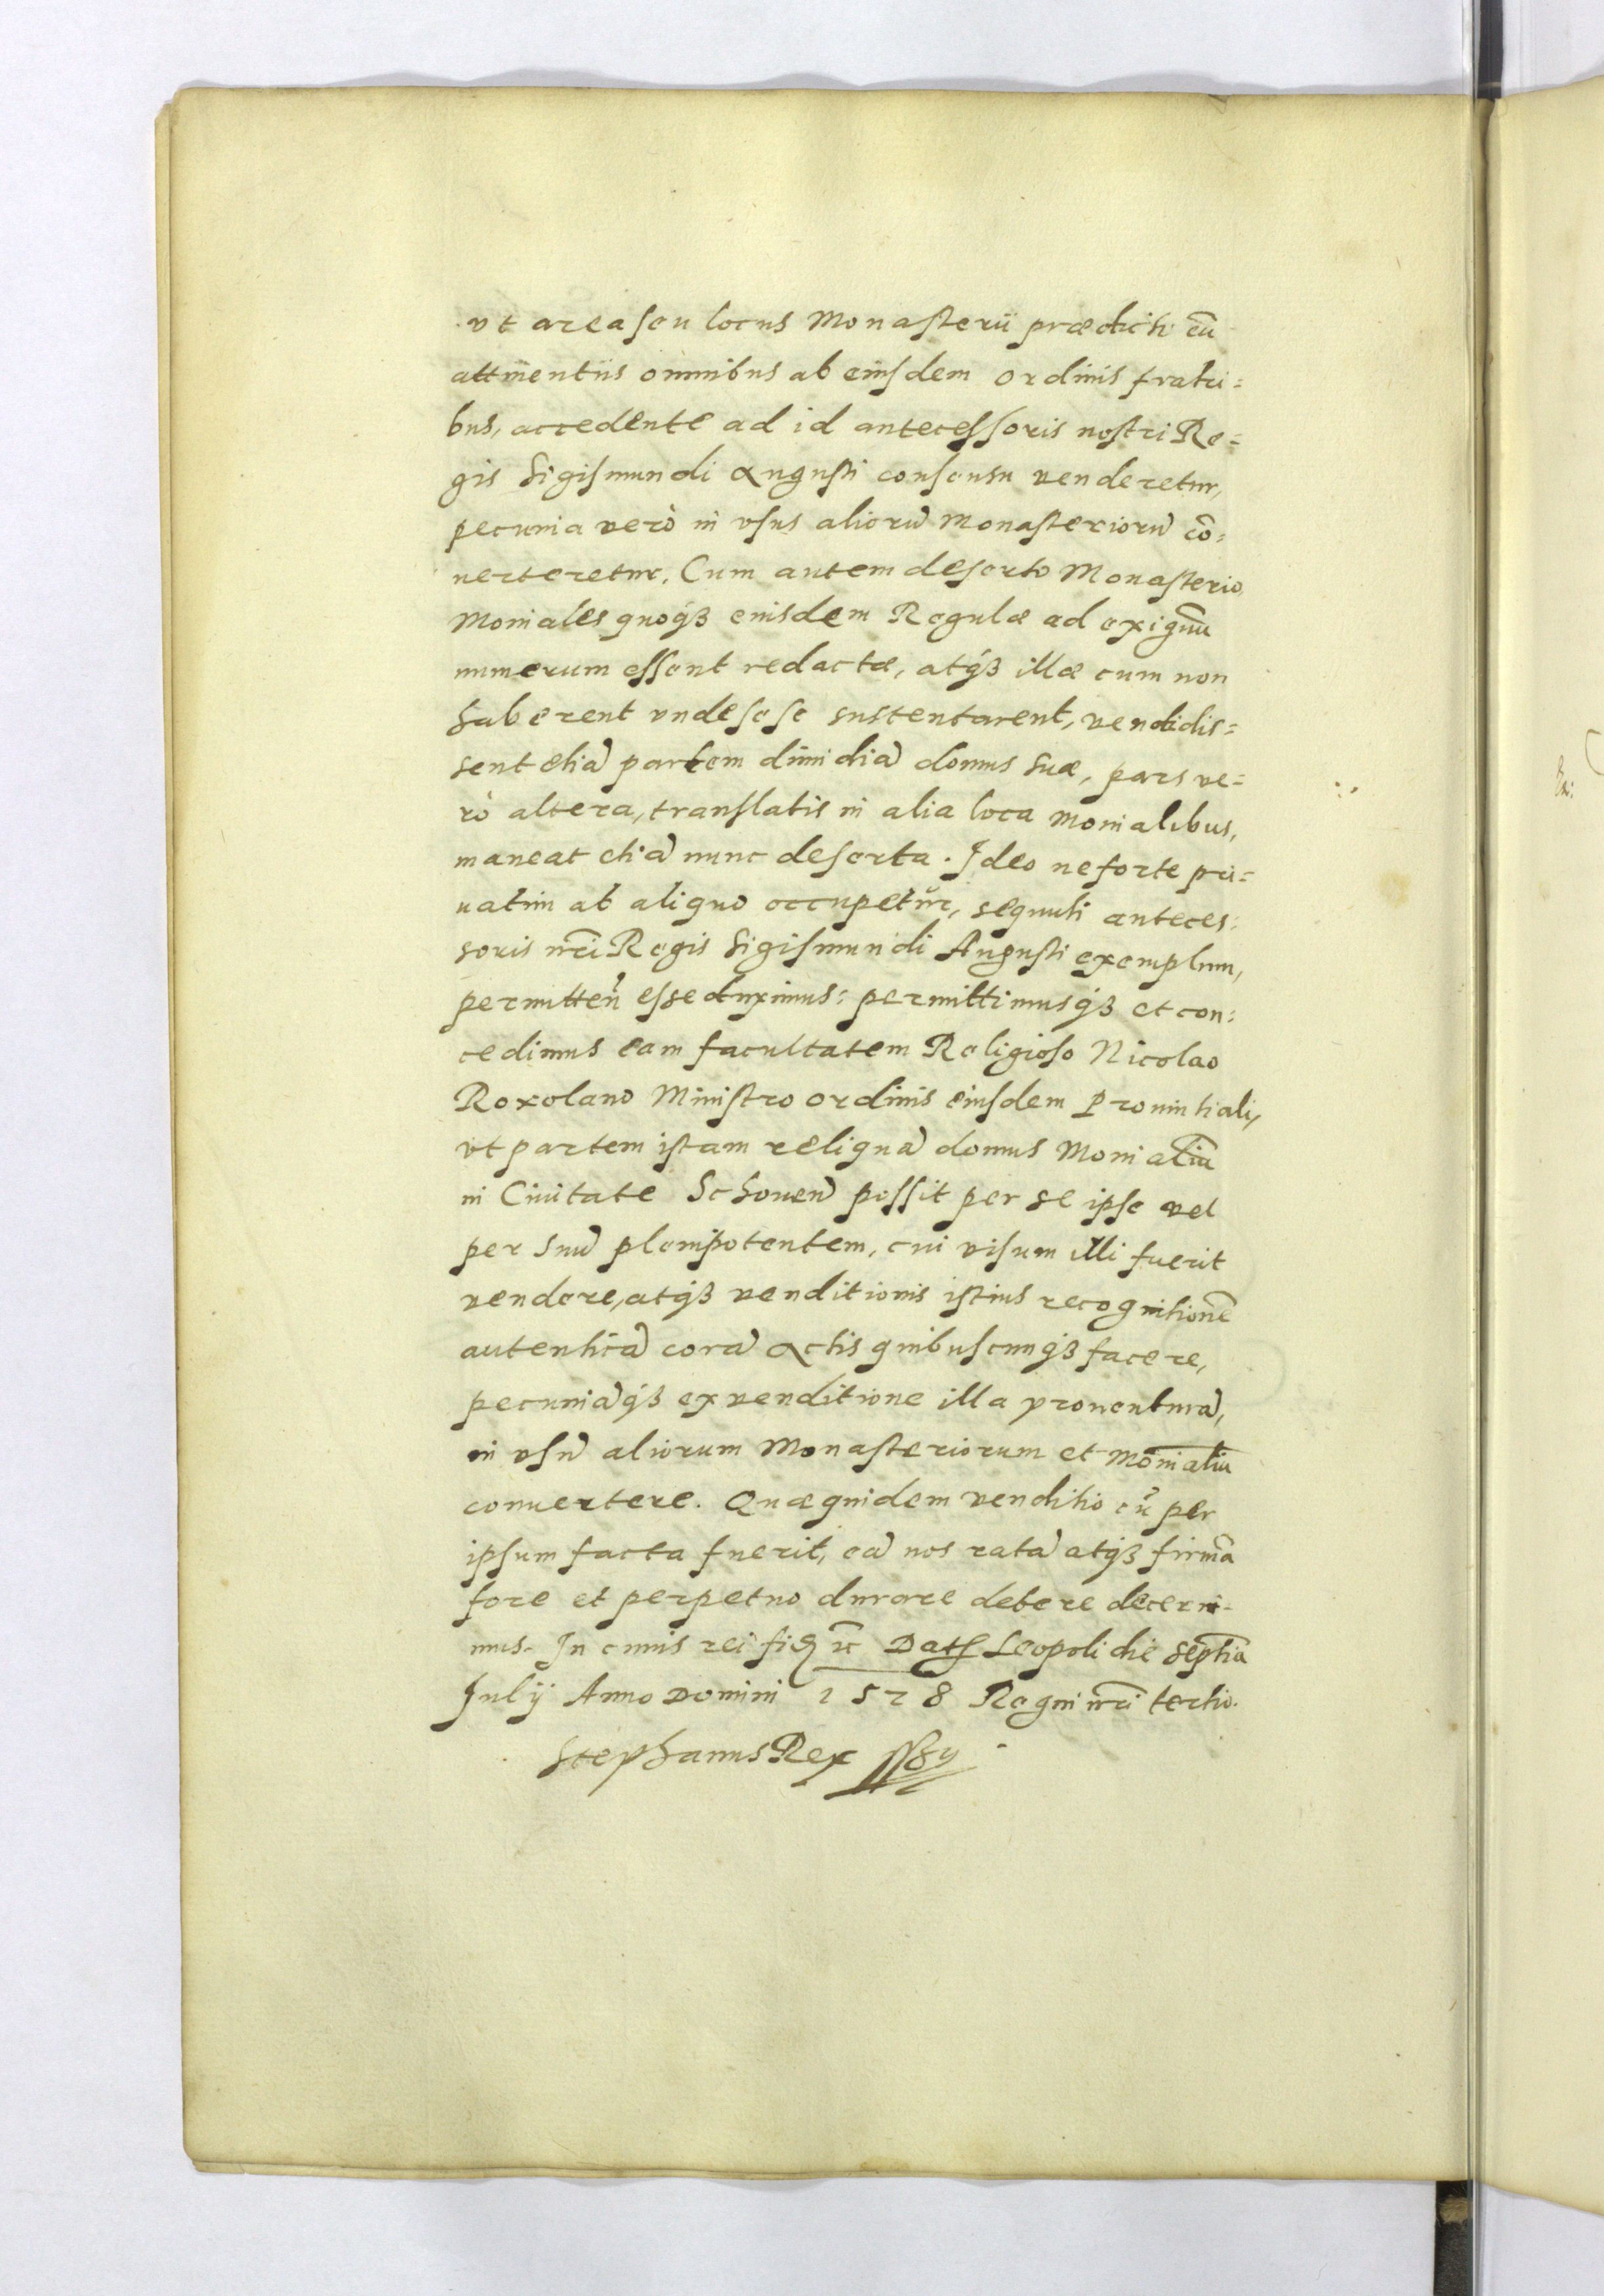 vt area seu locus Monasterii prædicti cū
attinentiis omnibus ab eiusdem ordinis fratri=
bus, accedente ad id antecessoris nostri Re=
gis Sigismundi Augusti consensu venderetur,
pecunia verò in vsus aliorū Monasteriorū cō=
uerteretur. Cum autem deserto Monasterio
Moniales quoqꝫ eiusdem Regulæ ad exiguū
numerum essent redactæ, atqꝫ illæ cum non
haberent vnde sese sustentarent, vendidis=
sent etiā partem dimidiā domus suæ, pars ve=
rò altera, translatis in alia loca monialibus,
maneat etiā nunc deserta. Ideo ne forte pri=
uatim ab aliquo occupetur, sequuti anteces=
soris nr̄i Regis Sigismundi Augusti exemplum,
permitten̄ esse duximus: permittimusqꝫ et con=
cedimus eam facultatem Religioso Nicolao
Roxolano Ministro ordinis eiusdem Prouintiali,
vt partem istam reliquā domus Monialiū
in Ciuitate Schouen̄ possit per se ipse vel
per suū plenipotentem, cui visum illi fuerit
vendere, atqꝫ venditionis istius recognitionē
autenticā corā Actis quibuscunqꝫ facere,
pecuniāqꝫ ex venditione illa prouenturā,
in vsū aliorum Monasteriorum et Monialiū
conuertere. Quæ quidem venditio cū per
ipsum facta fuerit, eā nos ratā atqꝫ firmā
fore et perpetuo durare debere decerni=
mus. In cuius rei fidē ꝛc Datū Leopoli die septīa
Julij Anno Domini 1578 Regni nr̄i tertio.
Stephanus Rex sst